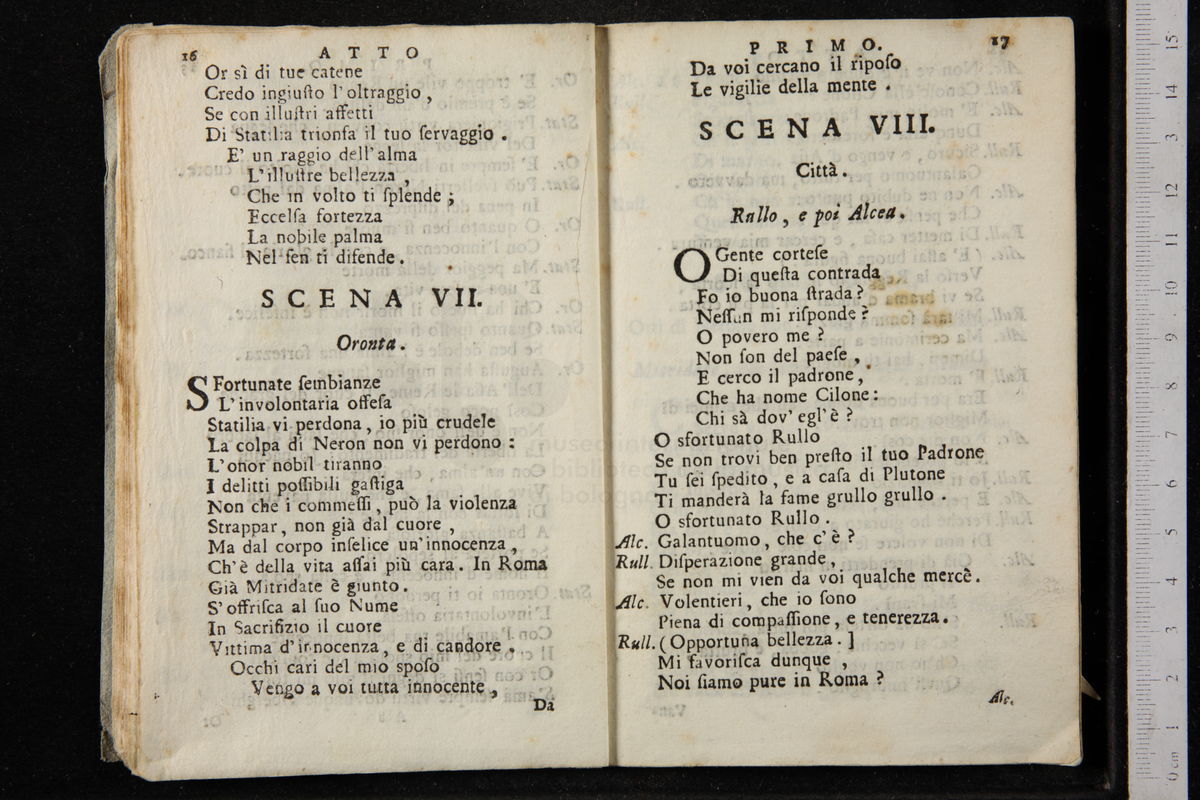 16 ATTO
Or sì di tue catene
Credo ingiuſto l'oltraggio,
Se con illuſtri affetti
Di Statilia trionfa il tuo ſervaggio.
E' un raggio dell'alma
L'illuſtre bellezza,
Che in volto ti ſplende;
Eccelſa fortezza
La nobile palma
Nel ſen ti difende.
SCENA VII.
Oronta.
SFortunate ſembianze
L'involontaria offeſa
Statilia vi perdona, io più crudele
La colpa di Neron non vi perdono:
L'onor nobil tiranno
I delitti poſſibili gaſtiga
Non che i commeſſi, può la violenza
Strappar, non già dal cuore,
Ma dal corpo infelice un'innocenza,
Ch'è della vita aſſai più cara. In Roma
Già Mitridate è giunto.
S'offriſca al ſuo Nume
In Sacrifizio il cuore
Vittima d'innocenza, e di candore.
Occhi cari del mio ſpoſo
Vengo a voi tutta innocente,
Da
PRIMO. 17
Da voi cercano il ripoſo
Le vigilie della mente.
SCENA VIII.
Città.
Rullo, e poi Alcea.
O Gente corteſe
Di queſta contrada
Fo io buona ſtrada?
Neſſun mi riſponde?
O povero me?
Non ſon del paeſe,
E cerco il padrone,
Che ha nome Cilone:
Chi sà dov'egl'è?
O sfortunato Rullo
Se non trovi ben preſto il tuo Padrone
Tu ſei ſpedito, e a caſa di Plutone
Ti manderà la fame grullo grullo.
O sfortunato Rullo.
Alc. Galantuomo, che c'è?
Rull. Diſperazione grande,
Se non mi vien da voi qualche mercè.
Alc. Volentieri, che io ſono
Piena di compaſſione, e tenerezza.
Rull. (Opportuna bellezza.]
Mi favoriſca dunque,
Noi ſiamo pure in Roma?
Alc.
0 cm 1 2 3 4 5 6 7 8 9 10 11 12 13 14 15